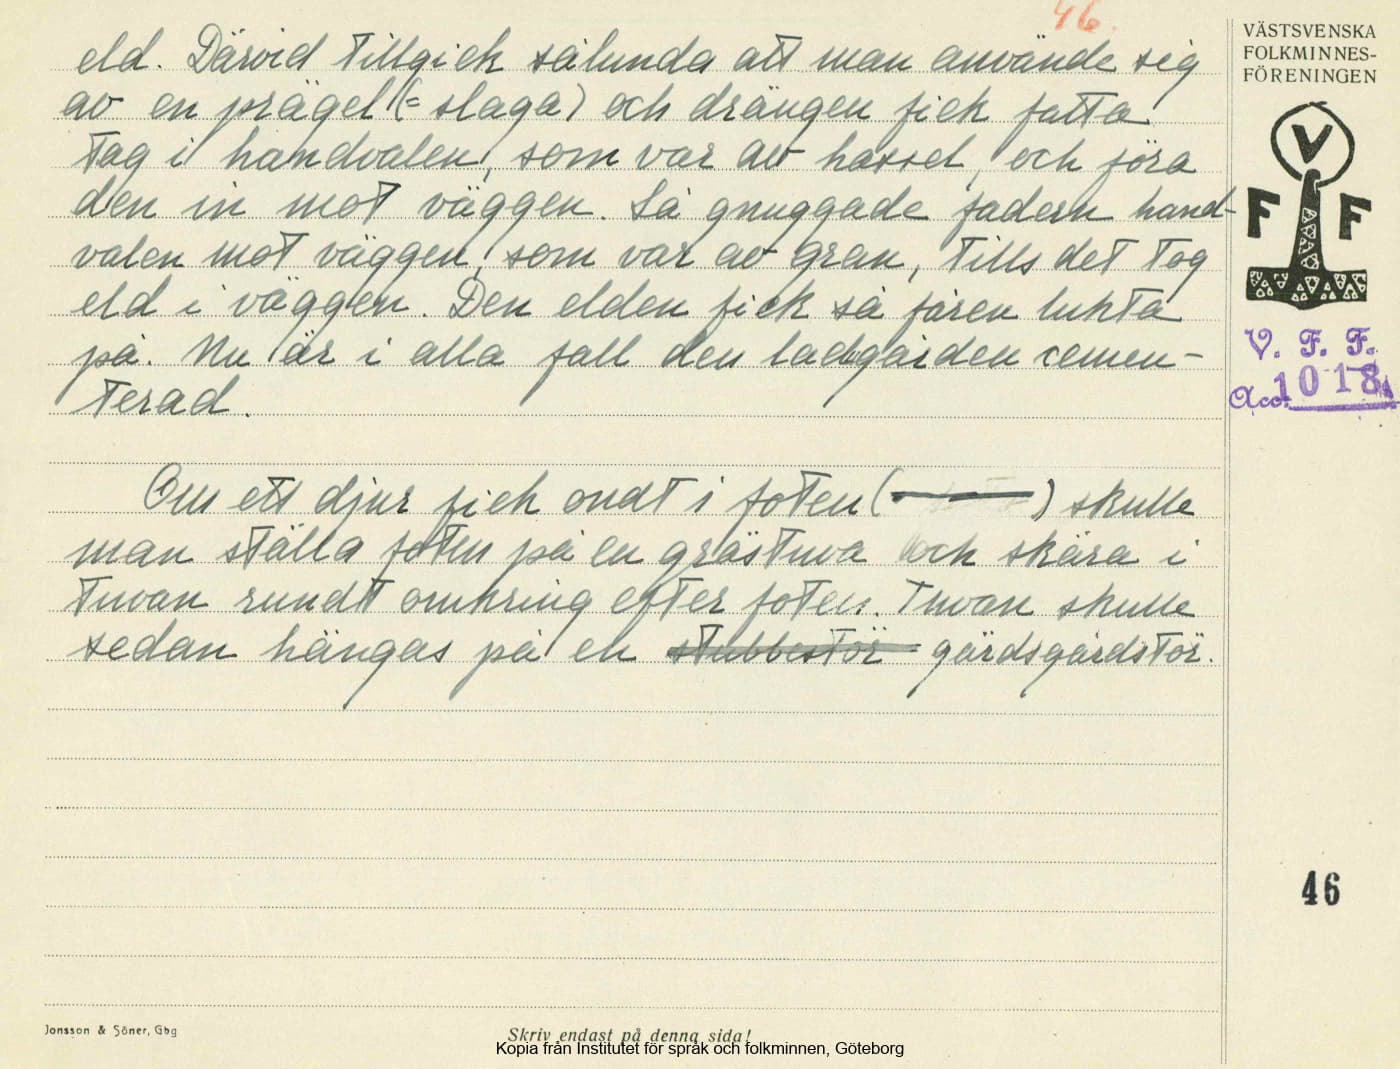 46.
eld. Därvid tillgick sålunda att man använde sig
av en prägel (= slaga) och drängen fick fatta
tag i handvalen, som var av hassel, och föra
den in mot väggen. Så gnuggade fadern hand-
valen mot väggen, som var av gran, tills det tog
eld i väggen. Den elden fick så fåren lukta
på. Nu är i alla fall den ladugården cemen-
terad.
Om ett djur fick ondt i foten ( ) skulle
man ställa foten på en grästuva och skära i
tuvan rundt omkring efter foten. Tuvan skulle
sedan hängas på en stubbestör gärdsgårdstör.
VÄSTSVENSKA
FOLKMINNES-
FÖRENINGEN
V
F F
V. F. F.
Acc. 1018
46
Jonsson & Söner, Gbg
Skriv endast på denna sida!
Kopia från Institutet för språk och folkminnen, Göteborg